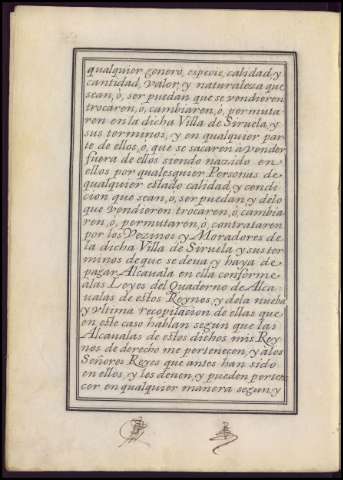 qualquier genero, especie, calidad, y
cantidad, valor, y naturaleza que
sean, ó, ser puedan que se vendieren
trocaren, ó, cambiaren, ó, permuta
ren en la dicha Villa de Siruela, y
sus terminos, y en qualquier par
te de ellos, ó, que se sacaren a vender
fuera de ellos siendo nacido en
ellos por qualesquier Personas de
qualquier estado calidad, y condi
cion que sean, ó, ser puedan, y delo
que vendieren trocaren, ó, cambia
ren, ó, permutaren, ó, contrataren
por los Vezinos, y Moradores de
la dicha Villa de Siruela, y sus ter
minos de que se deua, y haya de
pagar Alcauala en ella conforme
alas Leyes del Quaderno de Alca
ualas de estos Reynos, y dela nueba
y vltima recopilacion de ellas que
en este caso hablan segun que las
Alcaualas de estos dichos mis Rey
nos de derecho me pertenecen, y alos
Señores Reyes que antes han sido
en ellos, y les deuen, y pueden perten
cer en qualquier manera segun, y